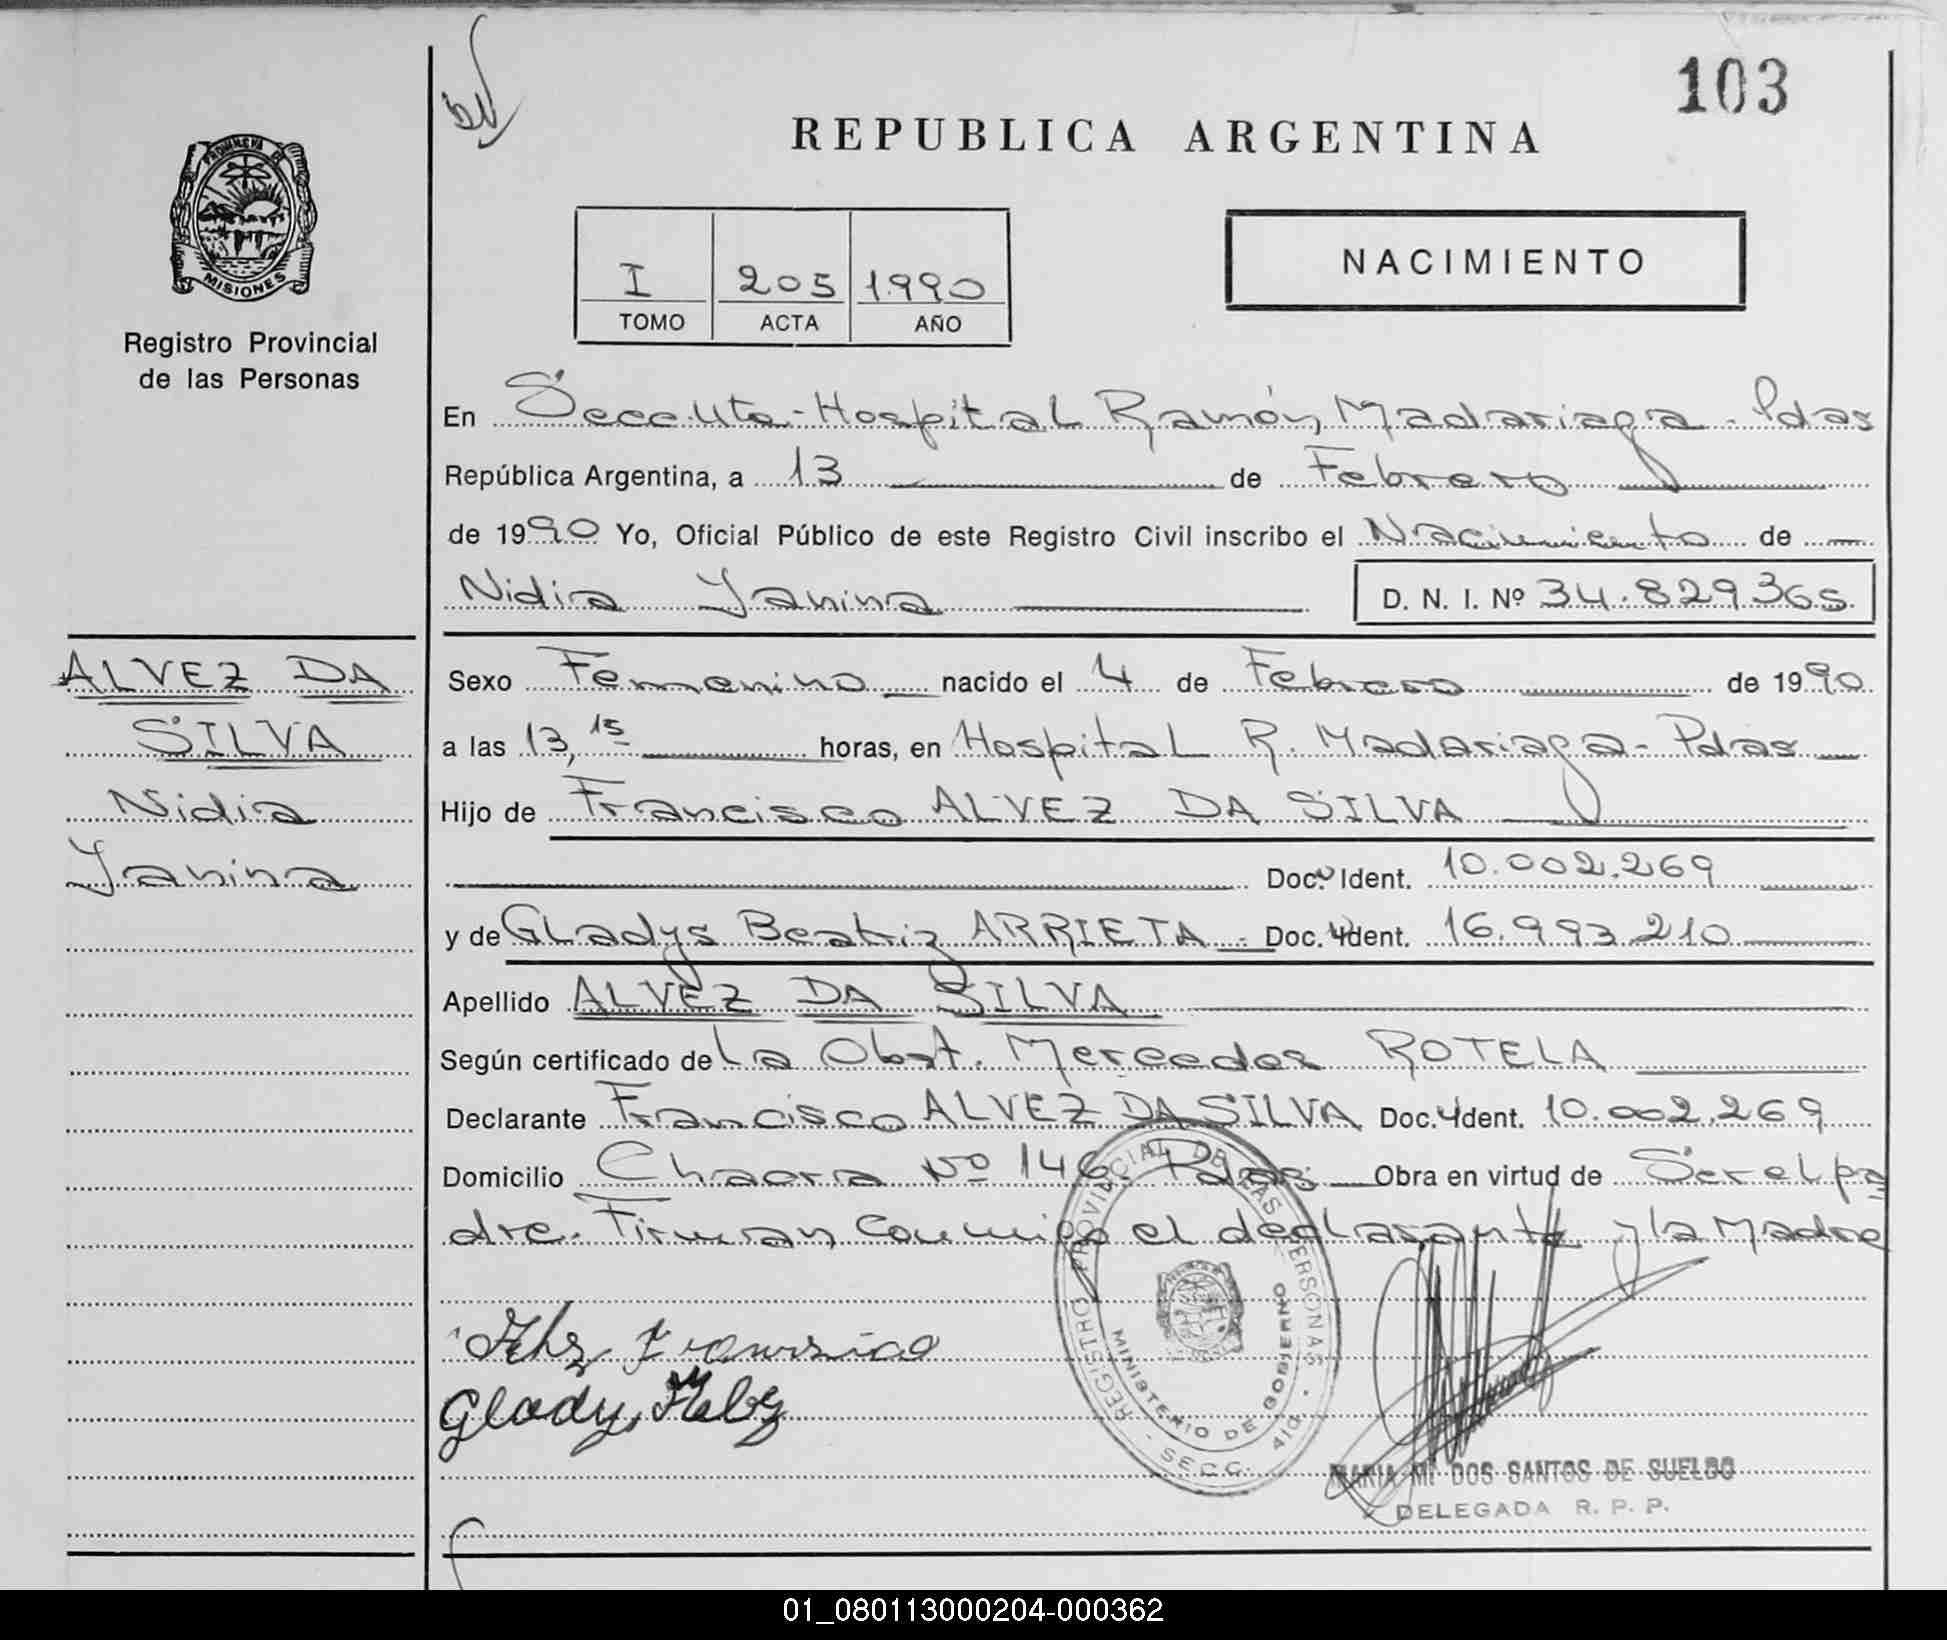 103
REPUBLICA ARGENTINA
PROVINCIA DE
MISIONES
Registro Provincial
de las Personas
I 205 1990
TOMO ACTA AÑO
NACIMIENTO
En Secc. 4ta - Hospital Ramón Madariaga - Pdas
República Argentina, a 13 de Febrero
de 1990 Yo, Oficial Público de este Registro Civil inscribo el Nacimiento de
Nidia Yanina D. N. I. Nº 34.829365
ALVEZ DA
SILVA
Nidia
Yanina
Sexo Femenino nacido el 4 de Febrero de 1990
a las 13,15 horas, en Hospital R. Madariaga - Pdas
Hijo de Francisco ALVEZ DA SILVA
Doc. Ident. 10.002.269
y de Gladys Beatriz ARRIETA - Doc. Ident. 16.993.210
Apellido ALVEZ DA SILVA
Según certificado de La Obst. Mercedes ROTELA
Declarante Francisco ALVEZ DA SILVA Doc. Ident. 10.002.269
Domicilio Chacra Nº 146. Pdas. Obra en virtud de Ser el pa
dre. Firman conmigo el declarante y la Madre
REGISTRO PROVINCIAL DE LAS PERSONAS
MINISTERIO DE GOBIERNO
SECC. 4ta.
MARIA M. DOS SANTOS DE SUELDO
DELEGADA R. P. P.
01_080113000204-000362